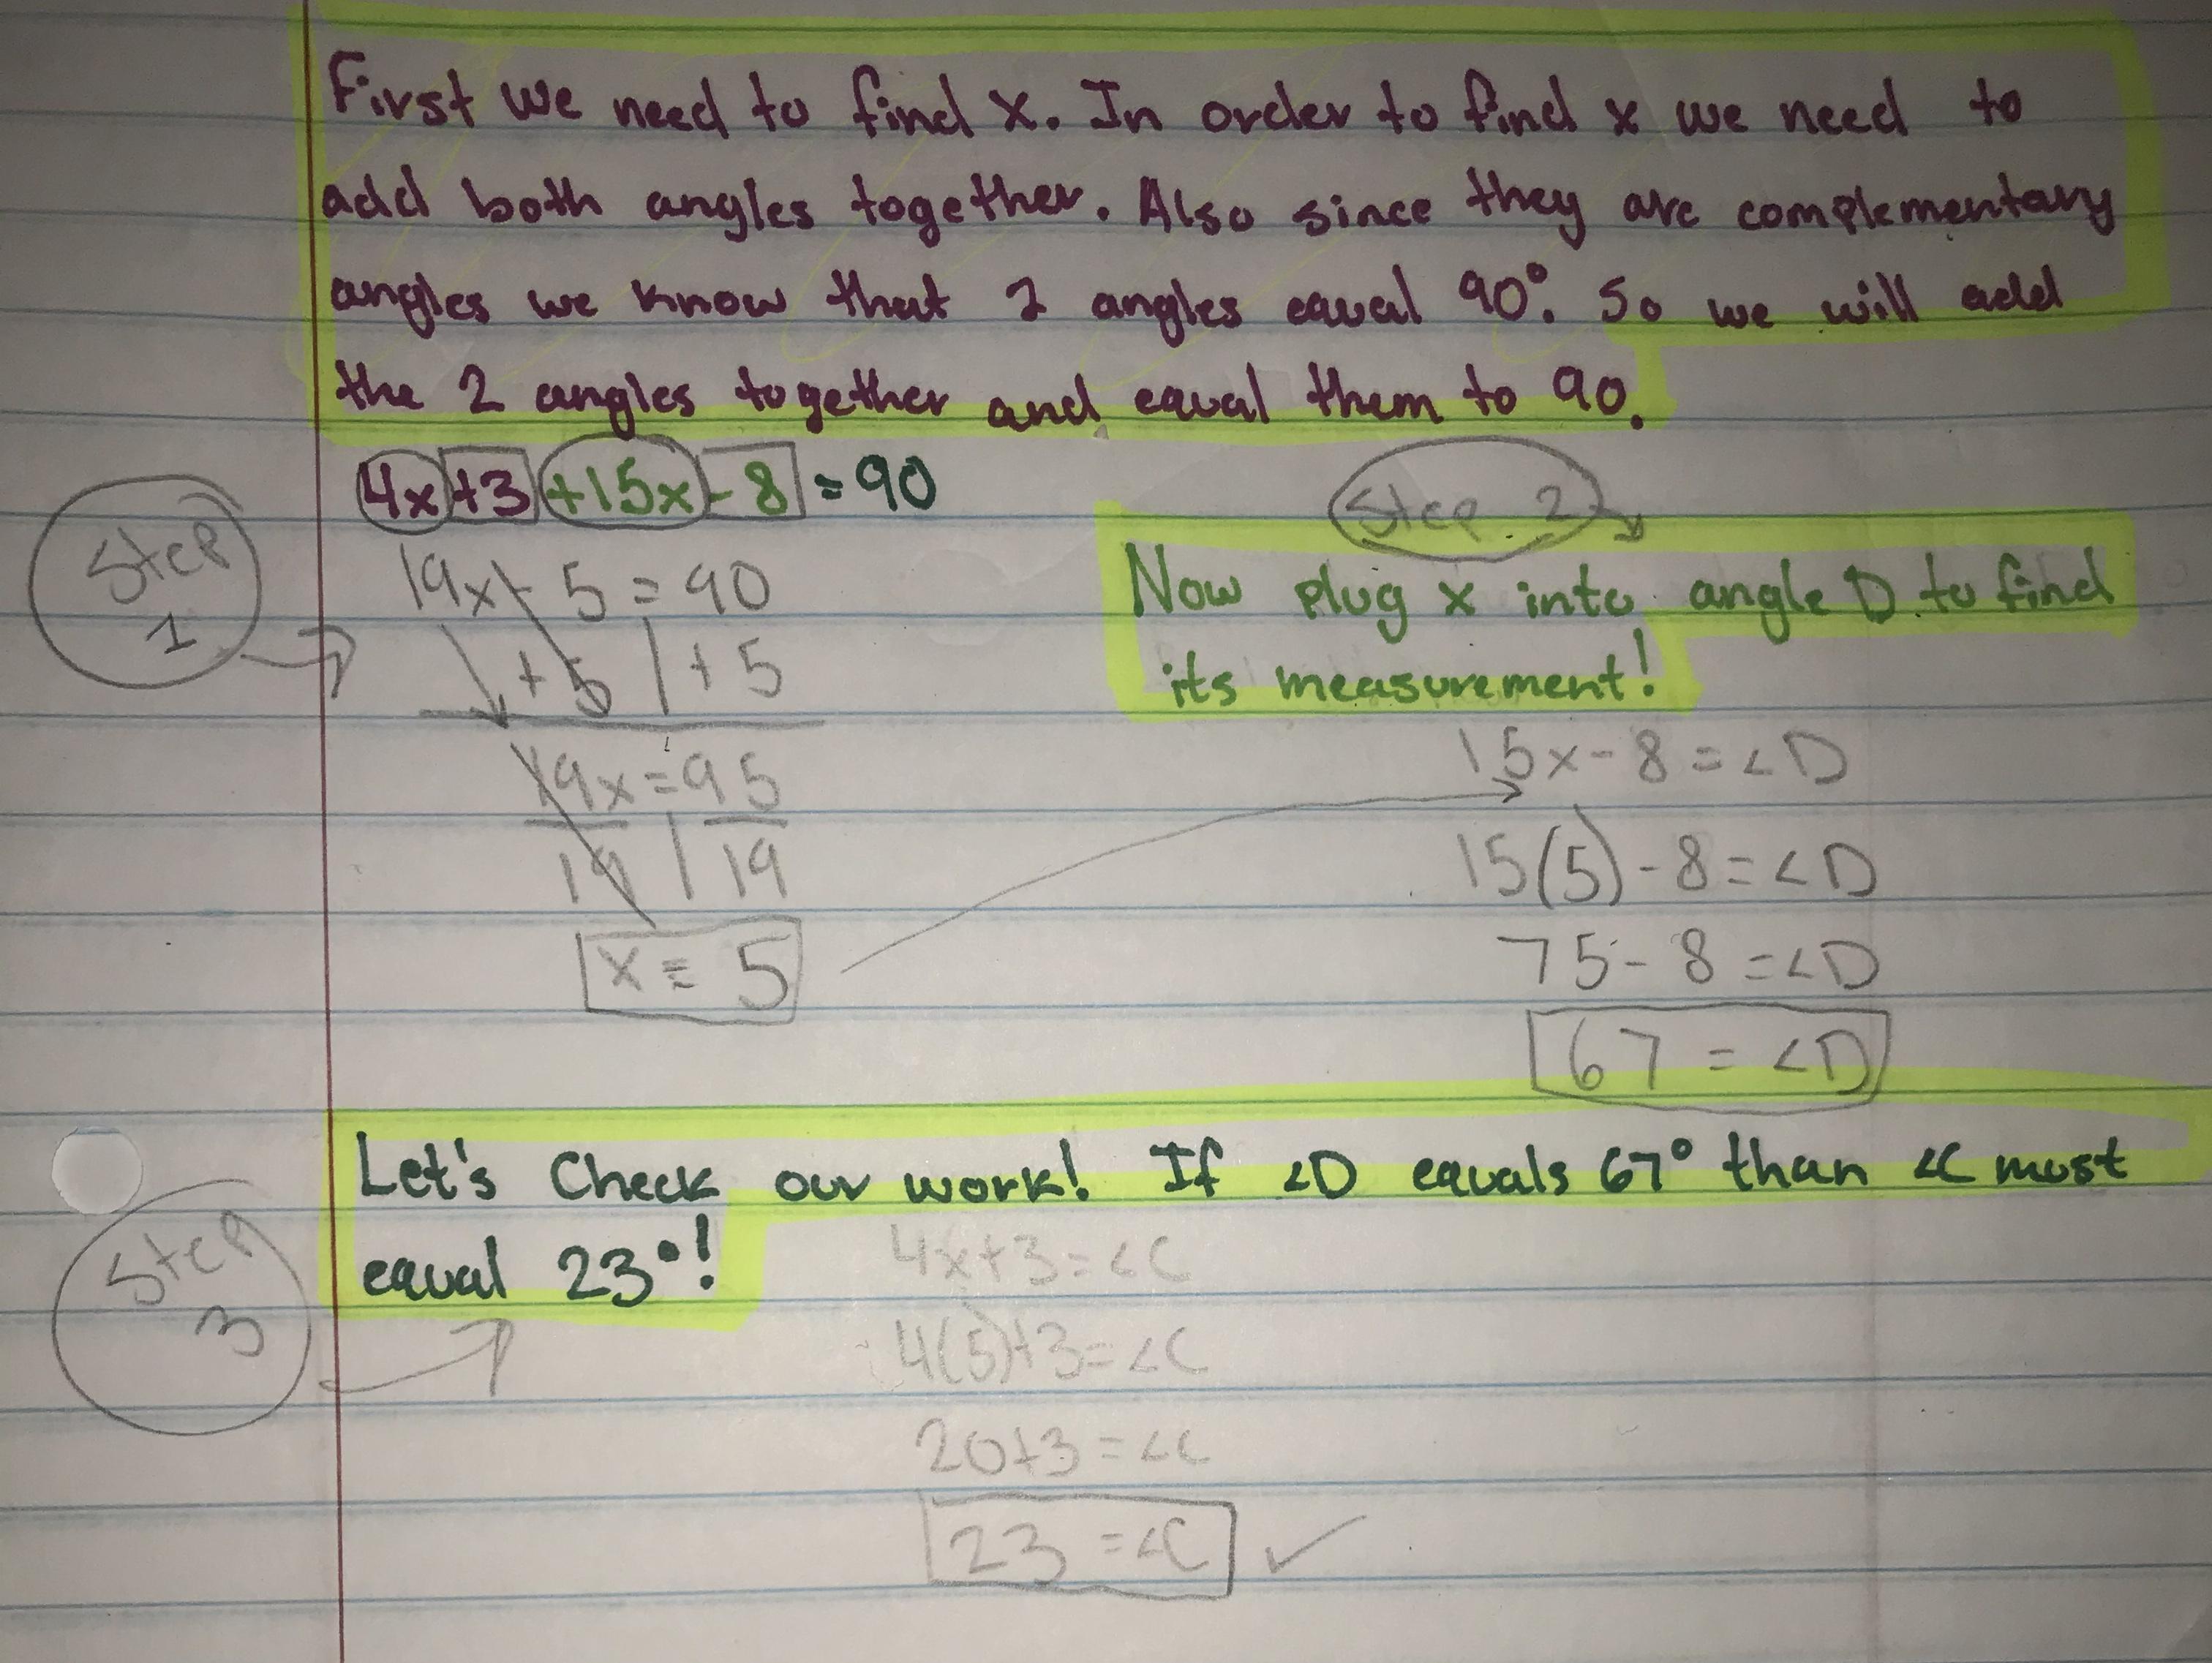 First we need to find x. In order to find x we need to
add both angles together. Also since they are complementary
angles we know that 2 angles equal 90°. So we will add
the 2 angles together and equal them to 90.
4x+3+15x-8=90
Step
1
19x-5=90
+5 | +5
19x=95
19 | 19
x=5
Step 2
Now plug x into angle D to find
its measurement!
15x-8=∠D
15(5)-8=∠D
75-8=∠D
67=∠D
Step
3
Let's Check our work! If ∠D equals 67° than ∠C must
equal 23°!
4x+3=∠C
4(5)+3=∠C
20+3=∠C
23=∠C ✓